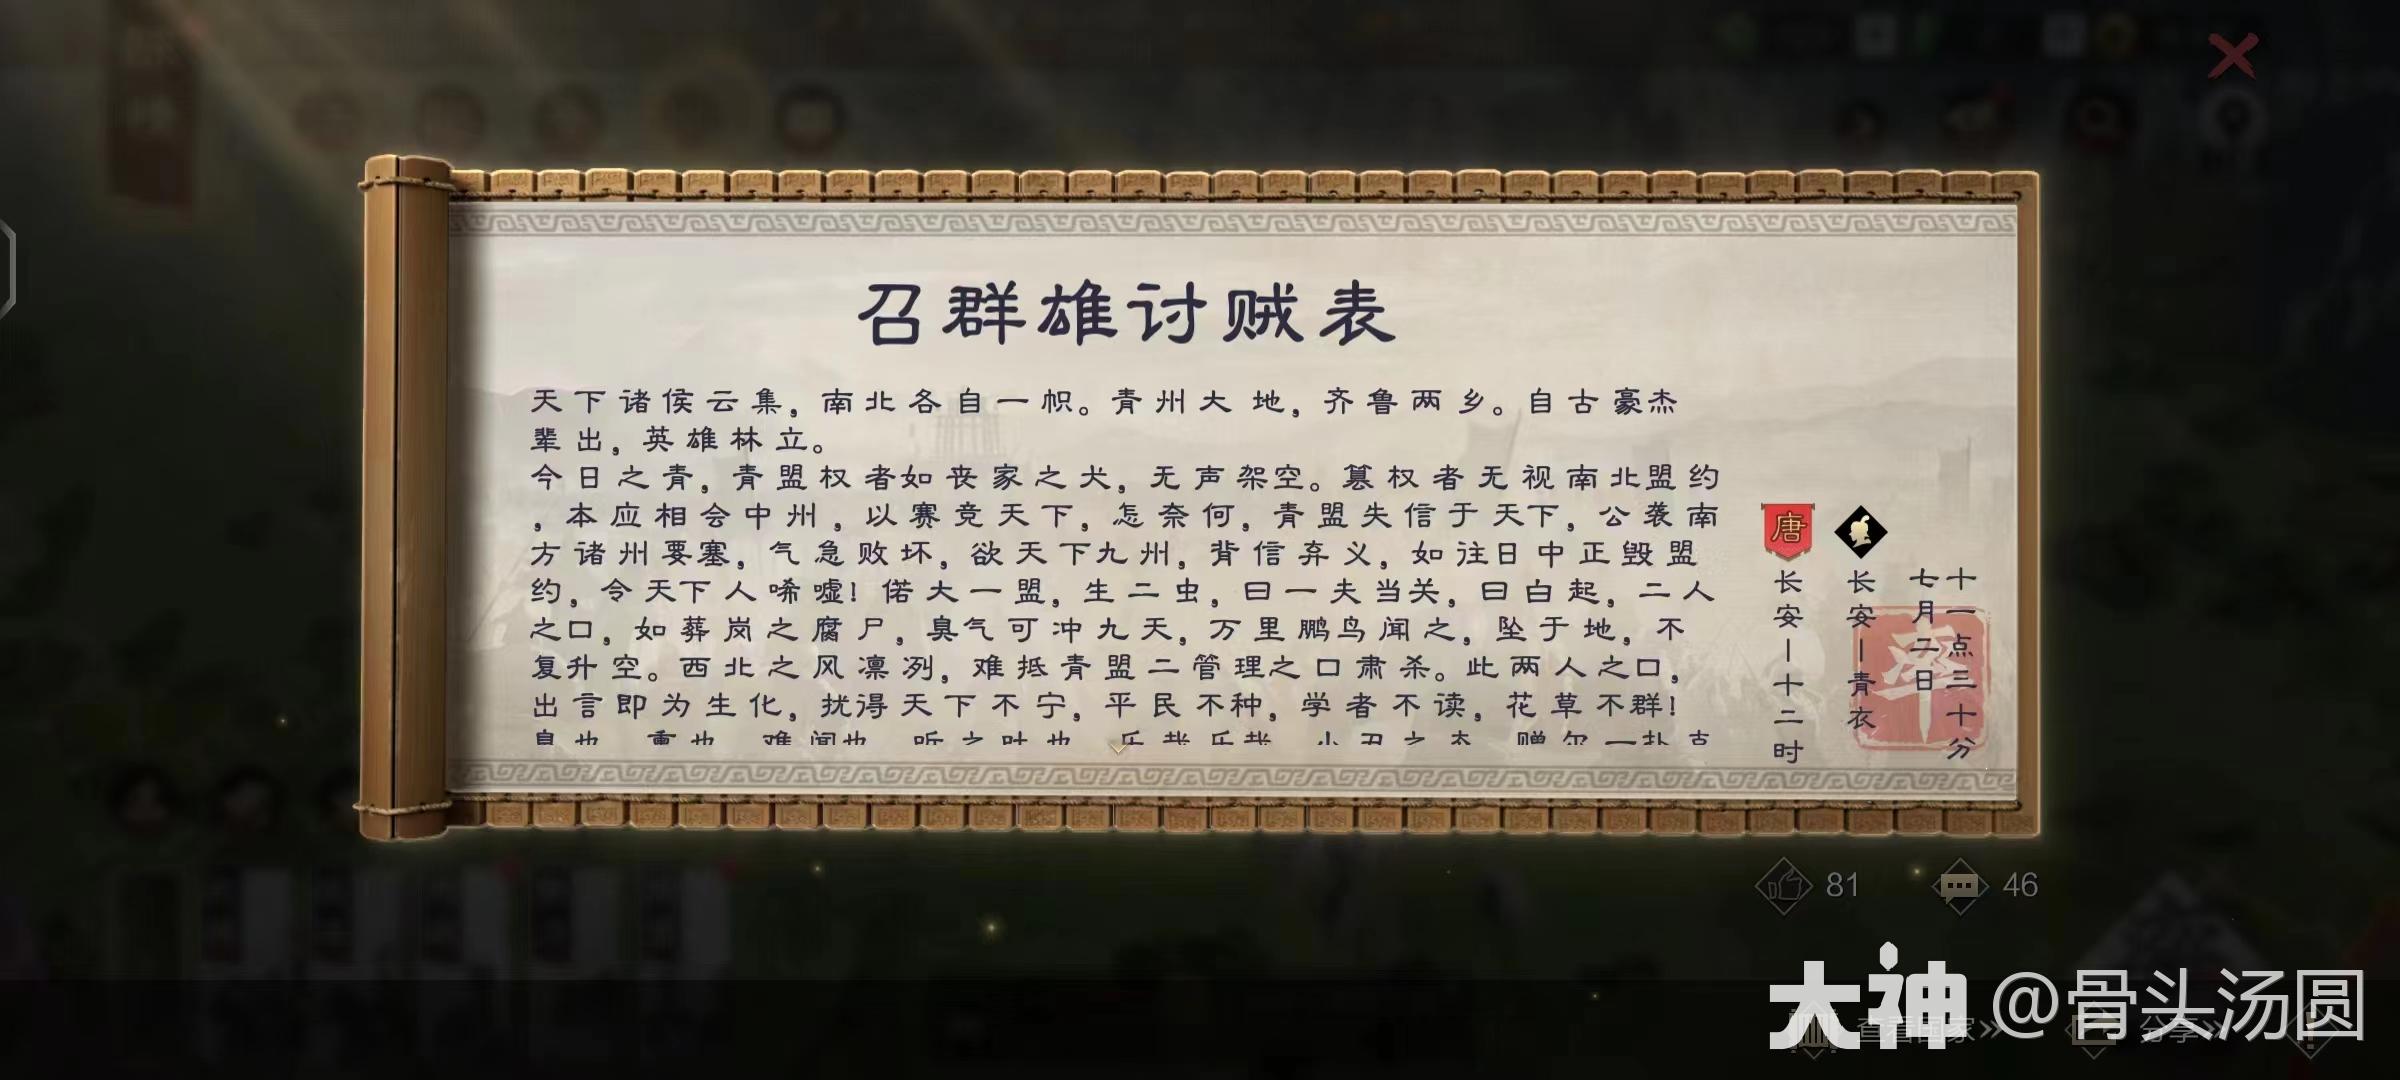 召群雄讨贼表
天下诸侯云集，南北各自一帜。青州大地，齐鲁两乡。自古豪杰
辈出，英雄林立。
今日之青，青盟权者如丧家之犬，无声架空。篡权者无视南北盟约
，本应相会中州，以赛竞天下，怎奈何，青盟失信于天下，公袭南
方诸州要塞，气急败坏，欲天下九州，背信弃义，如往日中正毁盟
约，令天下人唏嘘！偌大一盟，生二虫，曰一夫当关，曰白起，二人
之口，如葬岗之腐尸，臭气可冲九天，万里鹏鸟闻之，坠于地，不
复升空。西北之风凛冽，难抵青盟二管理之口肃杀。此两人之口，
出言即为生化，扰得天下不宁，平民不种，学者不读，花草不群！
唐
长安—十二时
长安—青衣
七月二日
十一点三十分
率
81
46
查看国家
分享
大神 @骨头汤圆